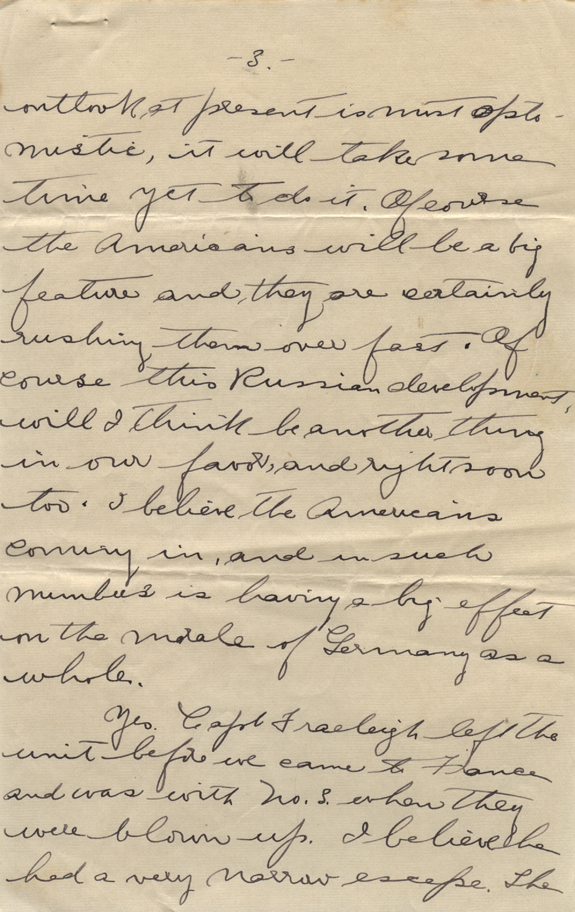 -3.-
outlook, at present is most opto-
mistic, it will take some
time yet to do it. Of course
the Americans will be a big
feature and, they are certainly
rushing them over fast. Of
course this Russian development,
will I think be another thing
in our favor, and right soon
too. I believe the Americans
coming in, and in such
numbers is having a big effect
on the morale of Germany as a
whole.
Yes. Capt Fraeleigh left the
unit before we came to France
and was with No. 3. when they
were blown up. I believe he
had a very narrow escape. The